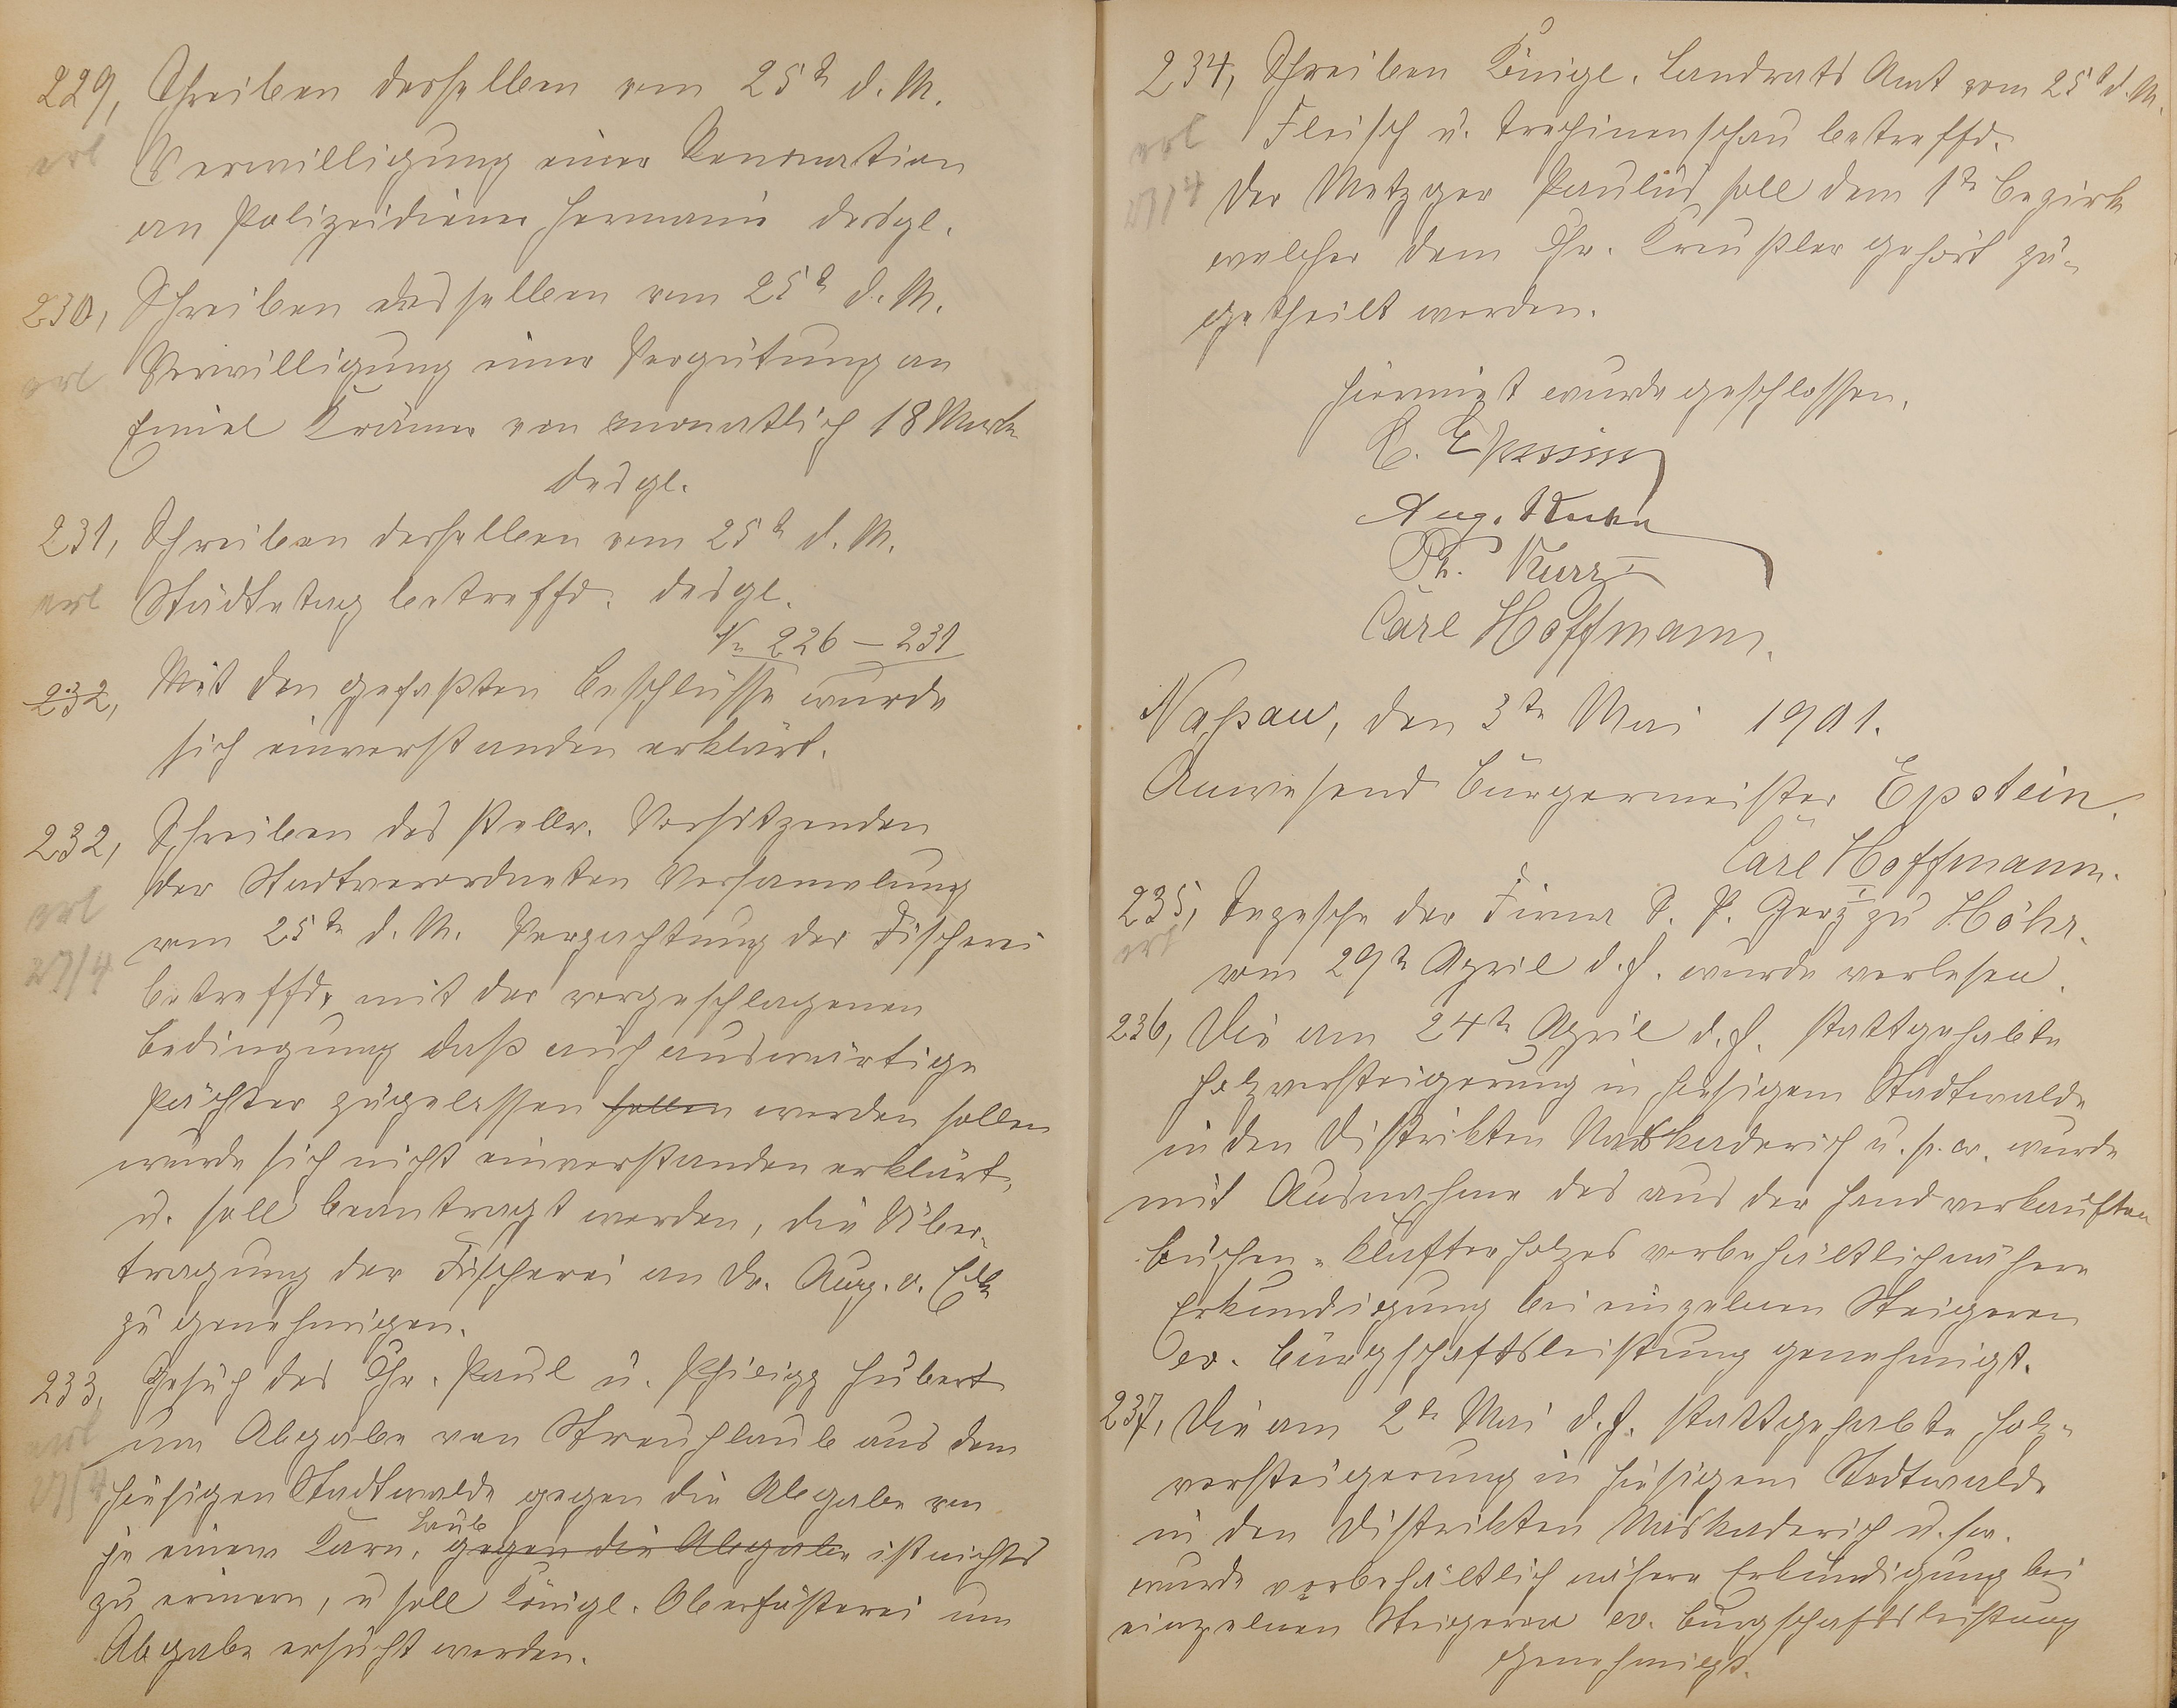 229, Schreiben desselben vom 25t d. M.
erl Verwilligung einer Remuneration
an Polizeidiener Hermani desgl.
230, Schreiben desselben vom 25t d. M.
erl Verwilligung einer Vergütung an
Emiel Krämer von monatlich 18 Mark
desgl.
231, Schreiben desselben vom 25t d. M.
erl Städtetag betreffd. desgl.
No 226 – 231
232, Mit den gefaßten Beschlüsse wurde
sich einverstanden erklärt.
232, Schreiben des stellv. Vorsitzenden
erl der Stadtverordneten Versammlung
27/4 vom 25te d. M. Verpachtung der Fischerei
betreffd. mit der vorgeschlagenen
Bedingung daß auch auswärtige
Pächter zugelassen sollen werden sollen
wurde sich nicht einverstanden erklärt,
u. soll beantragt werden, die Über-
tragung der Fischerei an Dr. Aug. v.
zu genehmigen.
233, Gesuch des Chr. Paul u. Philipp Hubert
erl um Abgabe von Streuchlaub aus dem
27/4 hiesigen Stadtwalde gegen die Abgabe von
Laub
je einem Karn, gegen die Abgabe ist nichts
zu erinern, u soll Königl. Oberfösterei um
Abgabe ersucht werden.
234, Schreiben Königl. Landrats Amt vom 25t d. M.
erl Fleisch u. Trechinenschau betreffd.
27/4 Der Metzger Paulus soll dem 1te Bezirk
welcher dem Chr. Kreußler gehört zu-
getheilt werden.
Hiermiet wurde geschlossen.
Aug. Kuhn
Ph. Kurz
Carl Hoffmann.
Naßau, den 3te Mai 1901.
Anwesend Bürgermeister Epstein.
Carl Hoffmann.
235, Depesche der Firma S. P. Gerz I zu Höhr.
erl vom 29te April d. J. wurde verlesen.
236, Die am 24te April d. J. stattgehabte
Holzversteigerung in hiesigem Stadtwalde
in den Distrikten Naskaderich u. s. w. wurde
mit Ausnahme des aus der Hand verkauften
Buchen-Klafterholzes vorbehältlich nähere
Erkundigung bei einzelnen Steigeren
ev. Bürgschaftsleistung genehmigt.
237, Die am 2te Mai d. J. stattgehabte Holz-
versteigerung in hiesigem Stadtwalde
in den Distrikten Naskaderich u. sw.
wurde vorbehältlich nähere Erkundigung bei
einzelnen Steigeren ev. Burgschaftsleistung
genehmigt.